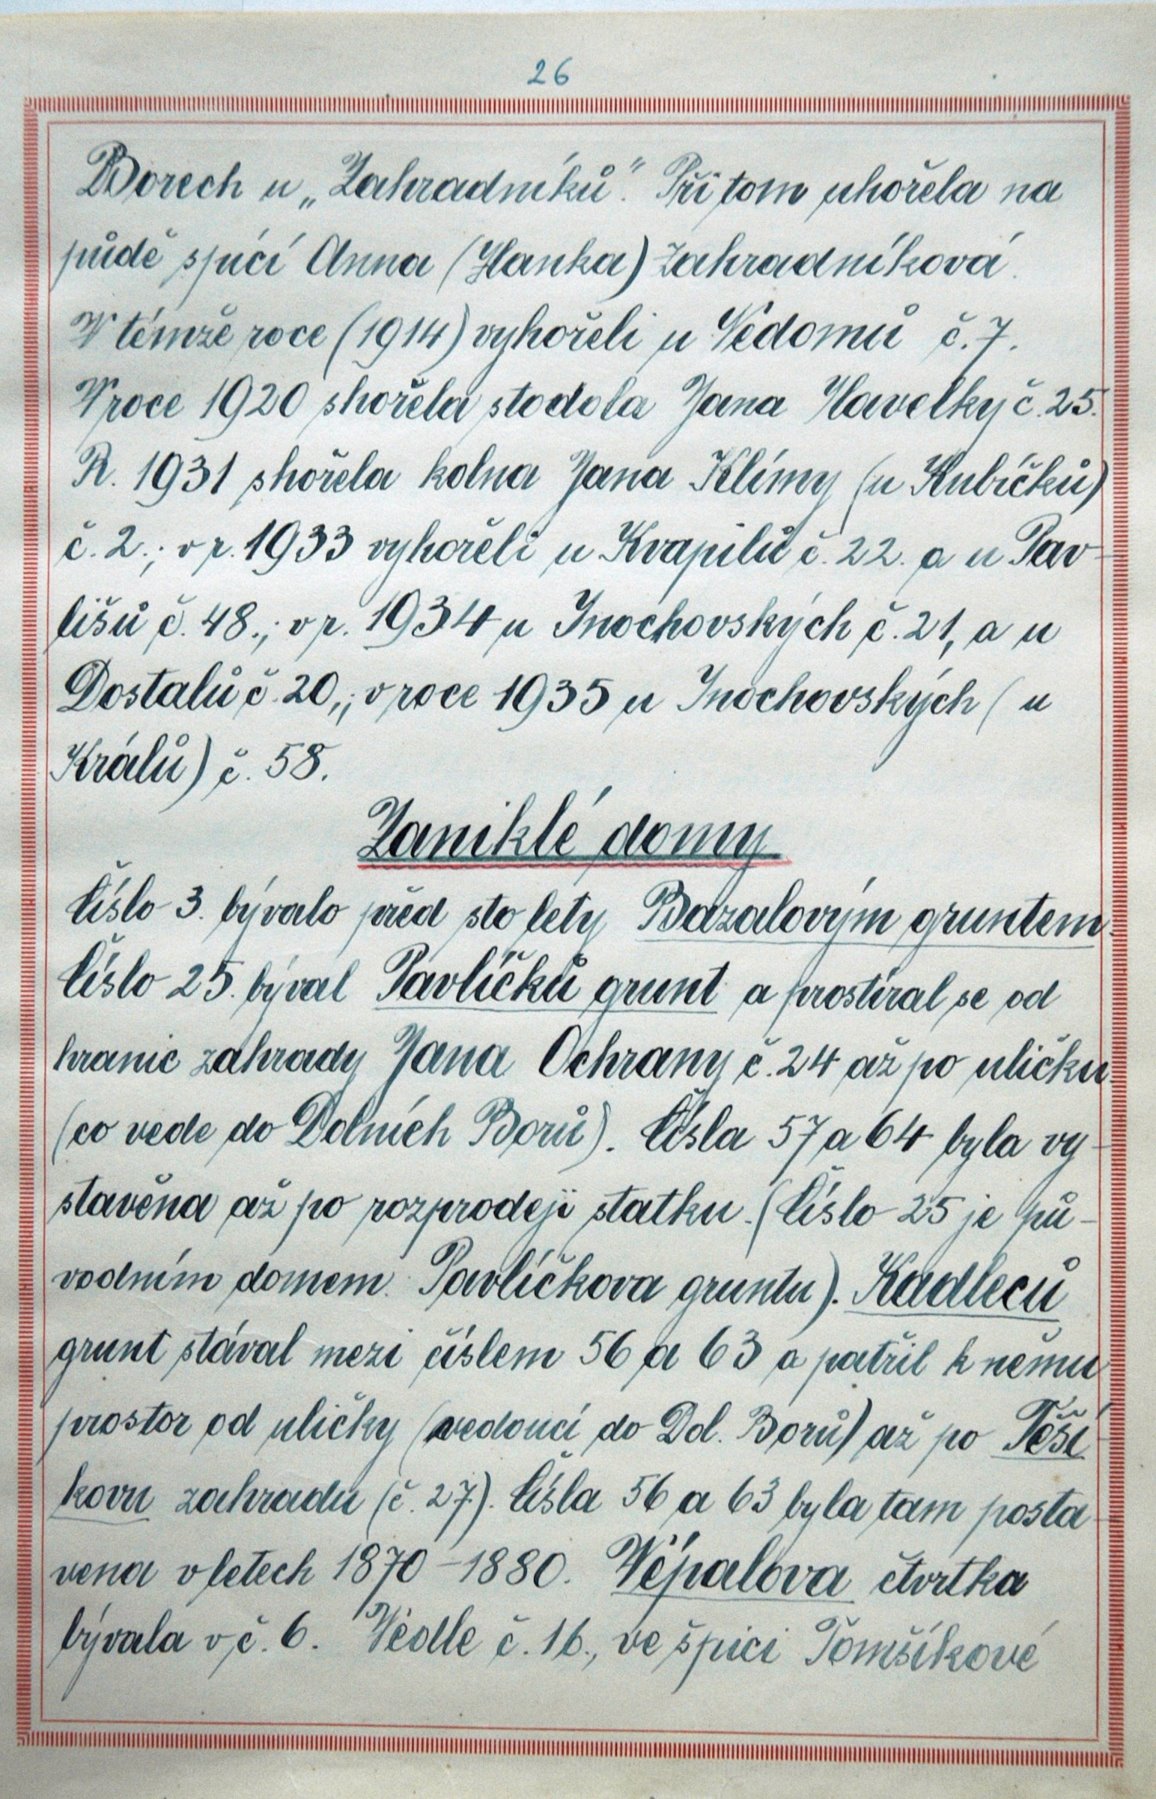 26
Borech u „Zahradníků". Při tom uhořela na
půdě spící Anna (Hanka) Zahradníková.
V témže roce (1914) vyhořeli u Vědomů č. 7.
V roce 1920 shořela stodola Jana Havelky č. 25.
R. 1931 shořela kolna Jana Klímy (u Kubíčků)
č. 2.; v r. 1933 vyhořeli u Kvapilů č. 22. a u Pav-
lišů č. 48.; v r. 1934 u Inochovských č. 21, a u
Dostalů č. 20,; v roce 1935 u Inochovských (u
Králů) č. 58.
Zaniklé domy
Číslo 3. bývalo před sto lety Bazalovým gruntem.
Číslo 25. býval Pavlíčků grunt a prostíral se od
hranic zahrady Jana Ochrany č. 24 až po uličku
(co vede do Dolních Borů). Čísla 57 a 64 byla vy-
stavěna až po rozprodeji statku. (Číslo 25 je pů-
vodním domem Pavlíčkova gruntu). Kadleců
grunt stával mezi číslem 56 a 63 a patřil k němu
prostor od uličky (vedoucí do Dol. Borů) až po Těší-
kovu zahradu (č. 27.). Čísla 56 a 63 byla tam posta-
vena v letech 1870-1880. Věpalova čtvrtka
bývala v č. 6. Vedle č. 16., ve špici Tomšíkové